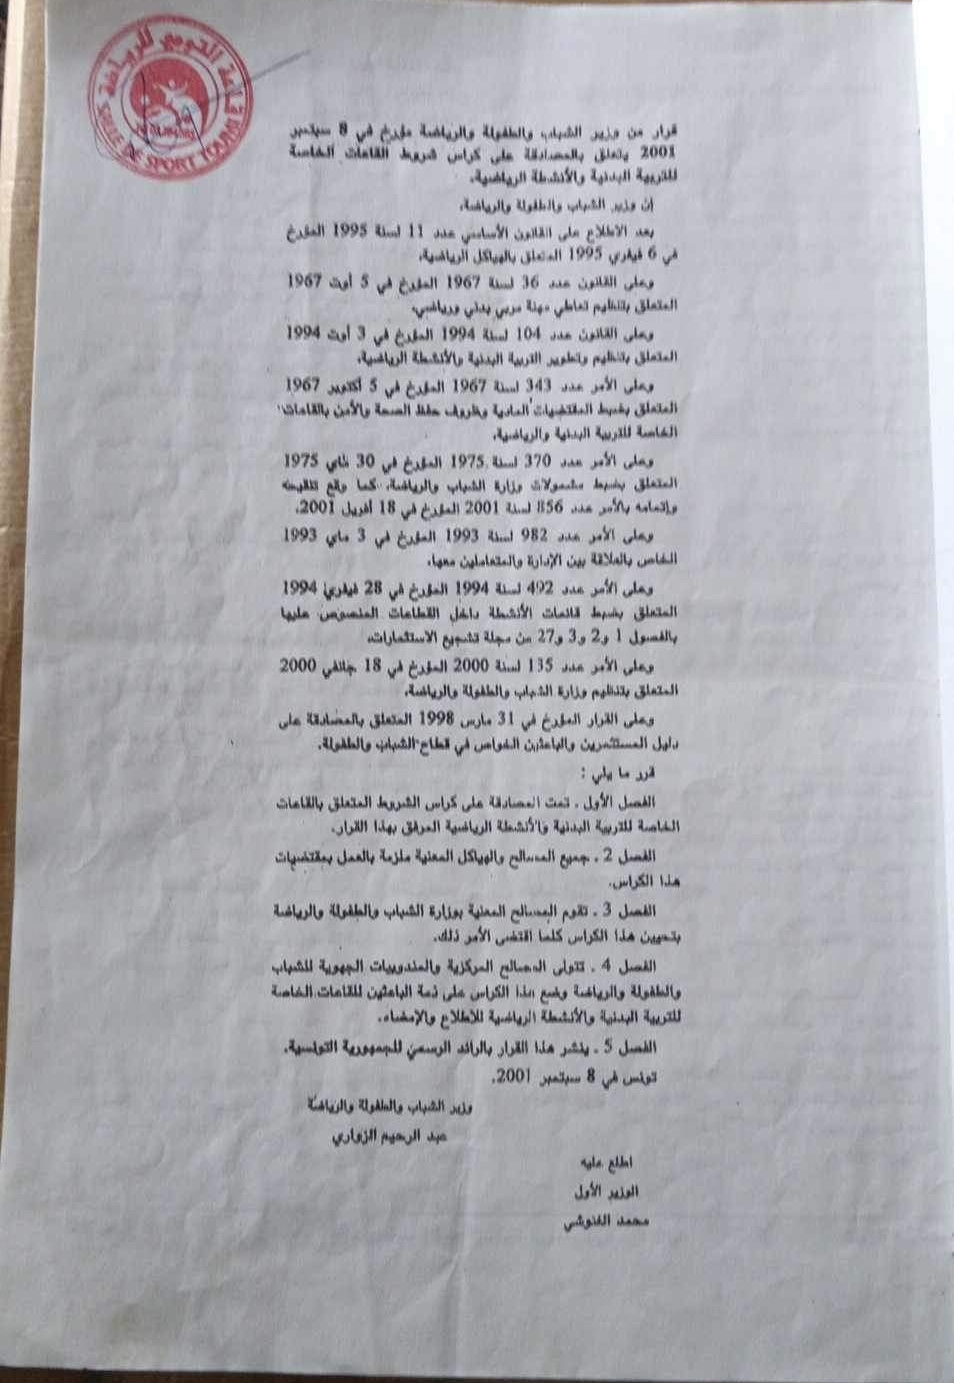 قاعة التومي للرياضة
SALLE DE SPORT TOUMI
قرار من وزير الشباب والطفولة والرياضة مؤرخ في 8 سبتمبر
2001 يتعلق بالمصادقة على كراس شروط القاعات الخاصة
للتربية البدنية والأنشطة الرياضية.
إن وزير الشباب والطفولة والرياضة،
بعد الاطلاع على القانون الأساسي عدد 11 لسنة 1995 المؤرخ
في 6 فيفري 1995 المتعلق بالهياكل الرياضية،
وعلى القانون عدد 36 لسنة 1967 المؤرخ في 5 أوت 1967
المتعلق بتنظيم تعاطي مهنة مربي بدني ورياضي،
وعلى القانون عدد 104 لسنة 1994 المؤرخ في 3 أوت 1994
المتعلق بتنظيم وتطوير التربية البدنية والأنشطة الرياضية،
وعلى الأمر عدد 343 لسنة 1967 المؤرخ في 5 أكتوبر 1967
المتعلق بضبط المقتضيات المادية وظروف حفظ الصحة والأمن بالقاعات
الخاصة للتربية البدنية والرياضية،
وعلى الأمر عدد 370 لسنة 1975 المؤرخ في 30 ماي 1975
المتعلق بضبط مشمولات وزارة الشباب والرياضة، كما وقع تنقيحه
وإتمامه بالأمر عدد 856 لسنة 2001 المؤرخ في 18 أفريل 2001،
وعلى الأمر عدد 982 لسنة 1993 المؤرخ في 3 ماي 1993
الخاص بالعلاقة بين الإدارة والمتعاملين معها،
وعلى الأمر عدد 492 لسنة 1994 المؤرخ في 28 فيفري 1994
المتعلق بضبط قائمات الأنشطة داخل القطاعات المنصوص عليها
بالفصول 1 و2 و3 و27 من مجلة تشجيع الاستثمارات،
وعلى الأمر عدد 135 لسنة 2000 المؤرخ في 18 جانفي 2000
المتعلق بتنظيم وزارة الشباب والطفولة والرياضة،
وعلى القرار المؤرخ في 31 مارس 1998 المتعلق بالمصادقة على
دليل المستثمرين والباعثين الخواص في قطاع الشباب والطفولة.
قرر ما يلي :
الفصل الأول . تمت المصادقة على كراس الشروط المتعلق بالقاعات
الخاصة للتربية البدنية والأنشطة الرياضية المرفق بهذا القرار.
الفصل 2 . جميع المصالح والهياكل المعنية ملزمة بالعمل بمقتضيات
هذا الكراس.
الفصل 3 . تقوم المصالح المعنية بوزارة الشباب والطفولة والرياضة
بتحيين هذا الكراس كلما اقتضى الأمر ذلك.
الفصل 4 . تتولى المصالح المركزية والمندوبيات الجهوية للشباب
والطفولة والرياضة وضع هذا الكراس على ذمة الباعثين للقاعات الخاصة
للتربية البدنية والأنشطة الرياضية للاطلاع والإمضاء.
الفصل 5 . ينشر هذا القرار بالرائد الرسمي للجمهورية التونسية.
تونس في 8 سبتمبر 2001.
وزير الشباب والطفولة والرياضة
عبد الرحيم الزواري
اطلع عليه
الوزير الأول
محمد الغنوشي